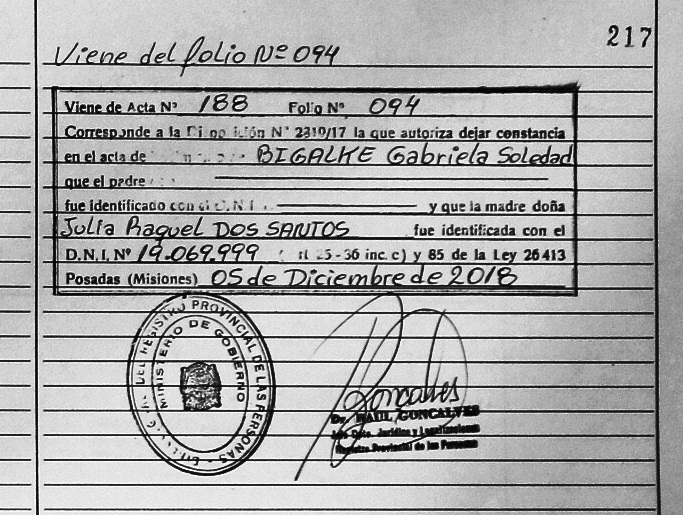 217
Viene del folio Nº 094
Viene de Acta Nº 188 Folio Nº 094
Corresponde a la Nº 2319/17 la que autoriza dejar constancia
en el acta de BIGALKE Gabriela Soledad
que el padre
fue identificado con el D.N.I. y que la madre doña
Julia Raquel DOS SANTOS fue identificada con el
D.N.I. Nº 19.069.999 25-36 inc. c) y 85 de la Ley 26413
Posadas (Misiones) 05 de Diciembre de 2018
DEL REGISTRO PROVINCIAL DE LAS PERSONAS
MINISTERIO DE GOBIERNO
Goncalves
Dr. RAUL GONCALVES
Dpto. Jurídico y Legalizaciones
Registro Provincial de las Personas